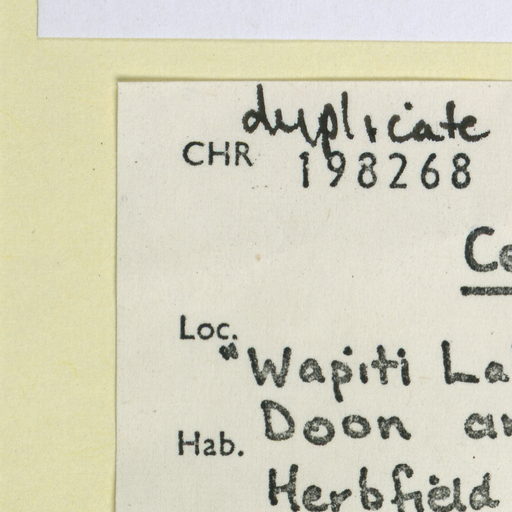 duplicate
CHR 198268
Loc.
"Wapiti
Hab. Doon
Herbfield